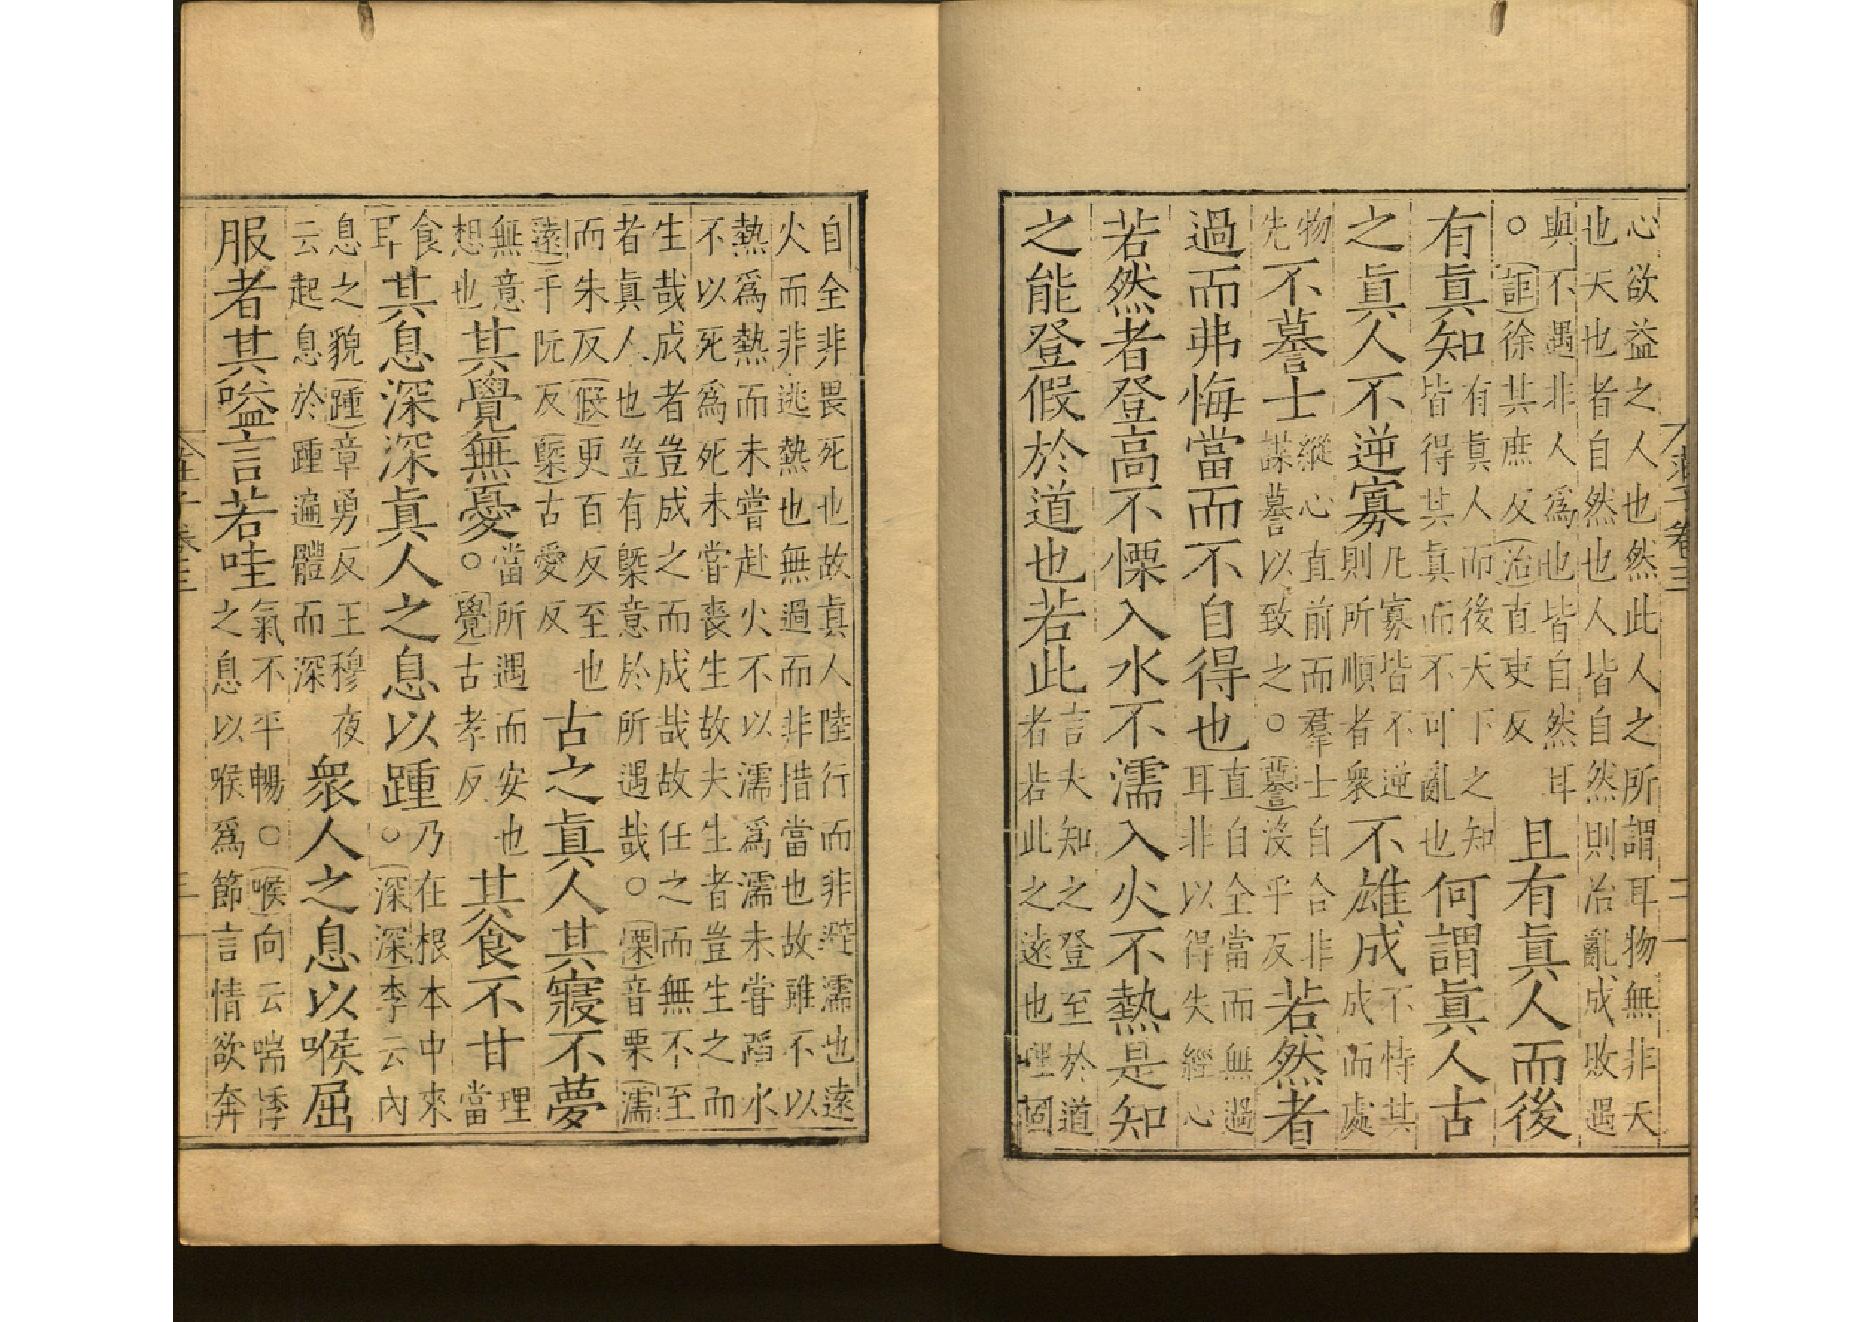 心欲益之人也然此人之所謂耳物無非天
也天也者自然也人皆自然則治亂成敗遇
與不遇非人爲也皆自然耳
○詎徐其庶反治直吏反
且有眞人而後
有眞知
有眞人而後天下之知
皆得其眞而不可亂也
何謂眞人古
之眞人不逆寡
凡寡皆不逆
則所順者衆
不雄成
不恃其
成而處
物
先
不謩士
縱心直前而羣士自合非
謀謩以致之○謩沒乎反
若然者
過而弗悔當而不自得也
直自全當而無過
耳非以得失經心
若然者登高不慄入水不濡入火不熱是知
之能登假於道也若此
言夫知之登至於道
者若此之遠也理固
莊子卷三
自全非畏死也故眞人陸行而非避濡也遠
火而非逃熱也無過而非措當也故雖不以
熱爲熱而未嘗赴火不以濡爲濡未嘗蹈水
不以死爲死未嘗喪生故夫生者豈生之而
生哉成者豈成之而成哉故任之而無不至
者眞人也豈有槩意於所遇哉○慄音栗濡
而朱反假更百反至也
遠于阮反槩古愛反
古之眞人其寢不夢
無意
想也
其覺無憂
當所遇而安也
○覺古孝反
其食不甘
理
當
食
耳
其息深深眞人之息以踵
乃在根本中來
○深深李云內
息之貌踵章勇反王穆夜
云起息於踵遍體而深
衆人之息以喉屈
服者其嗌言若哇
氣不平暢○喉向云喘悸
之息以喉爲節言情欲奔
莊子卷三